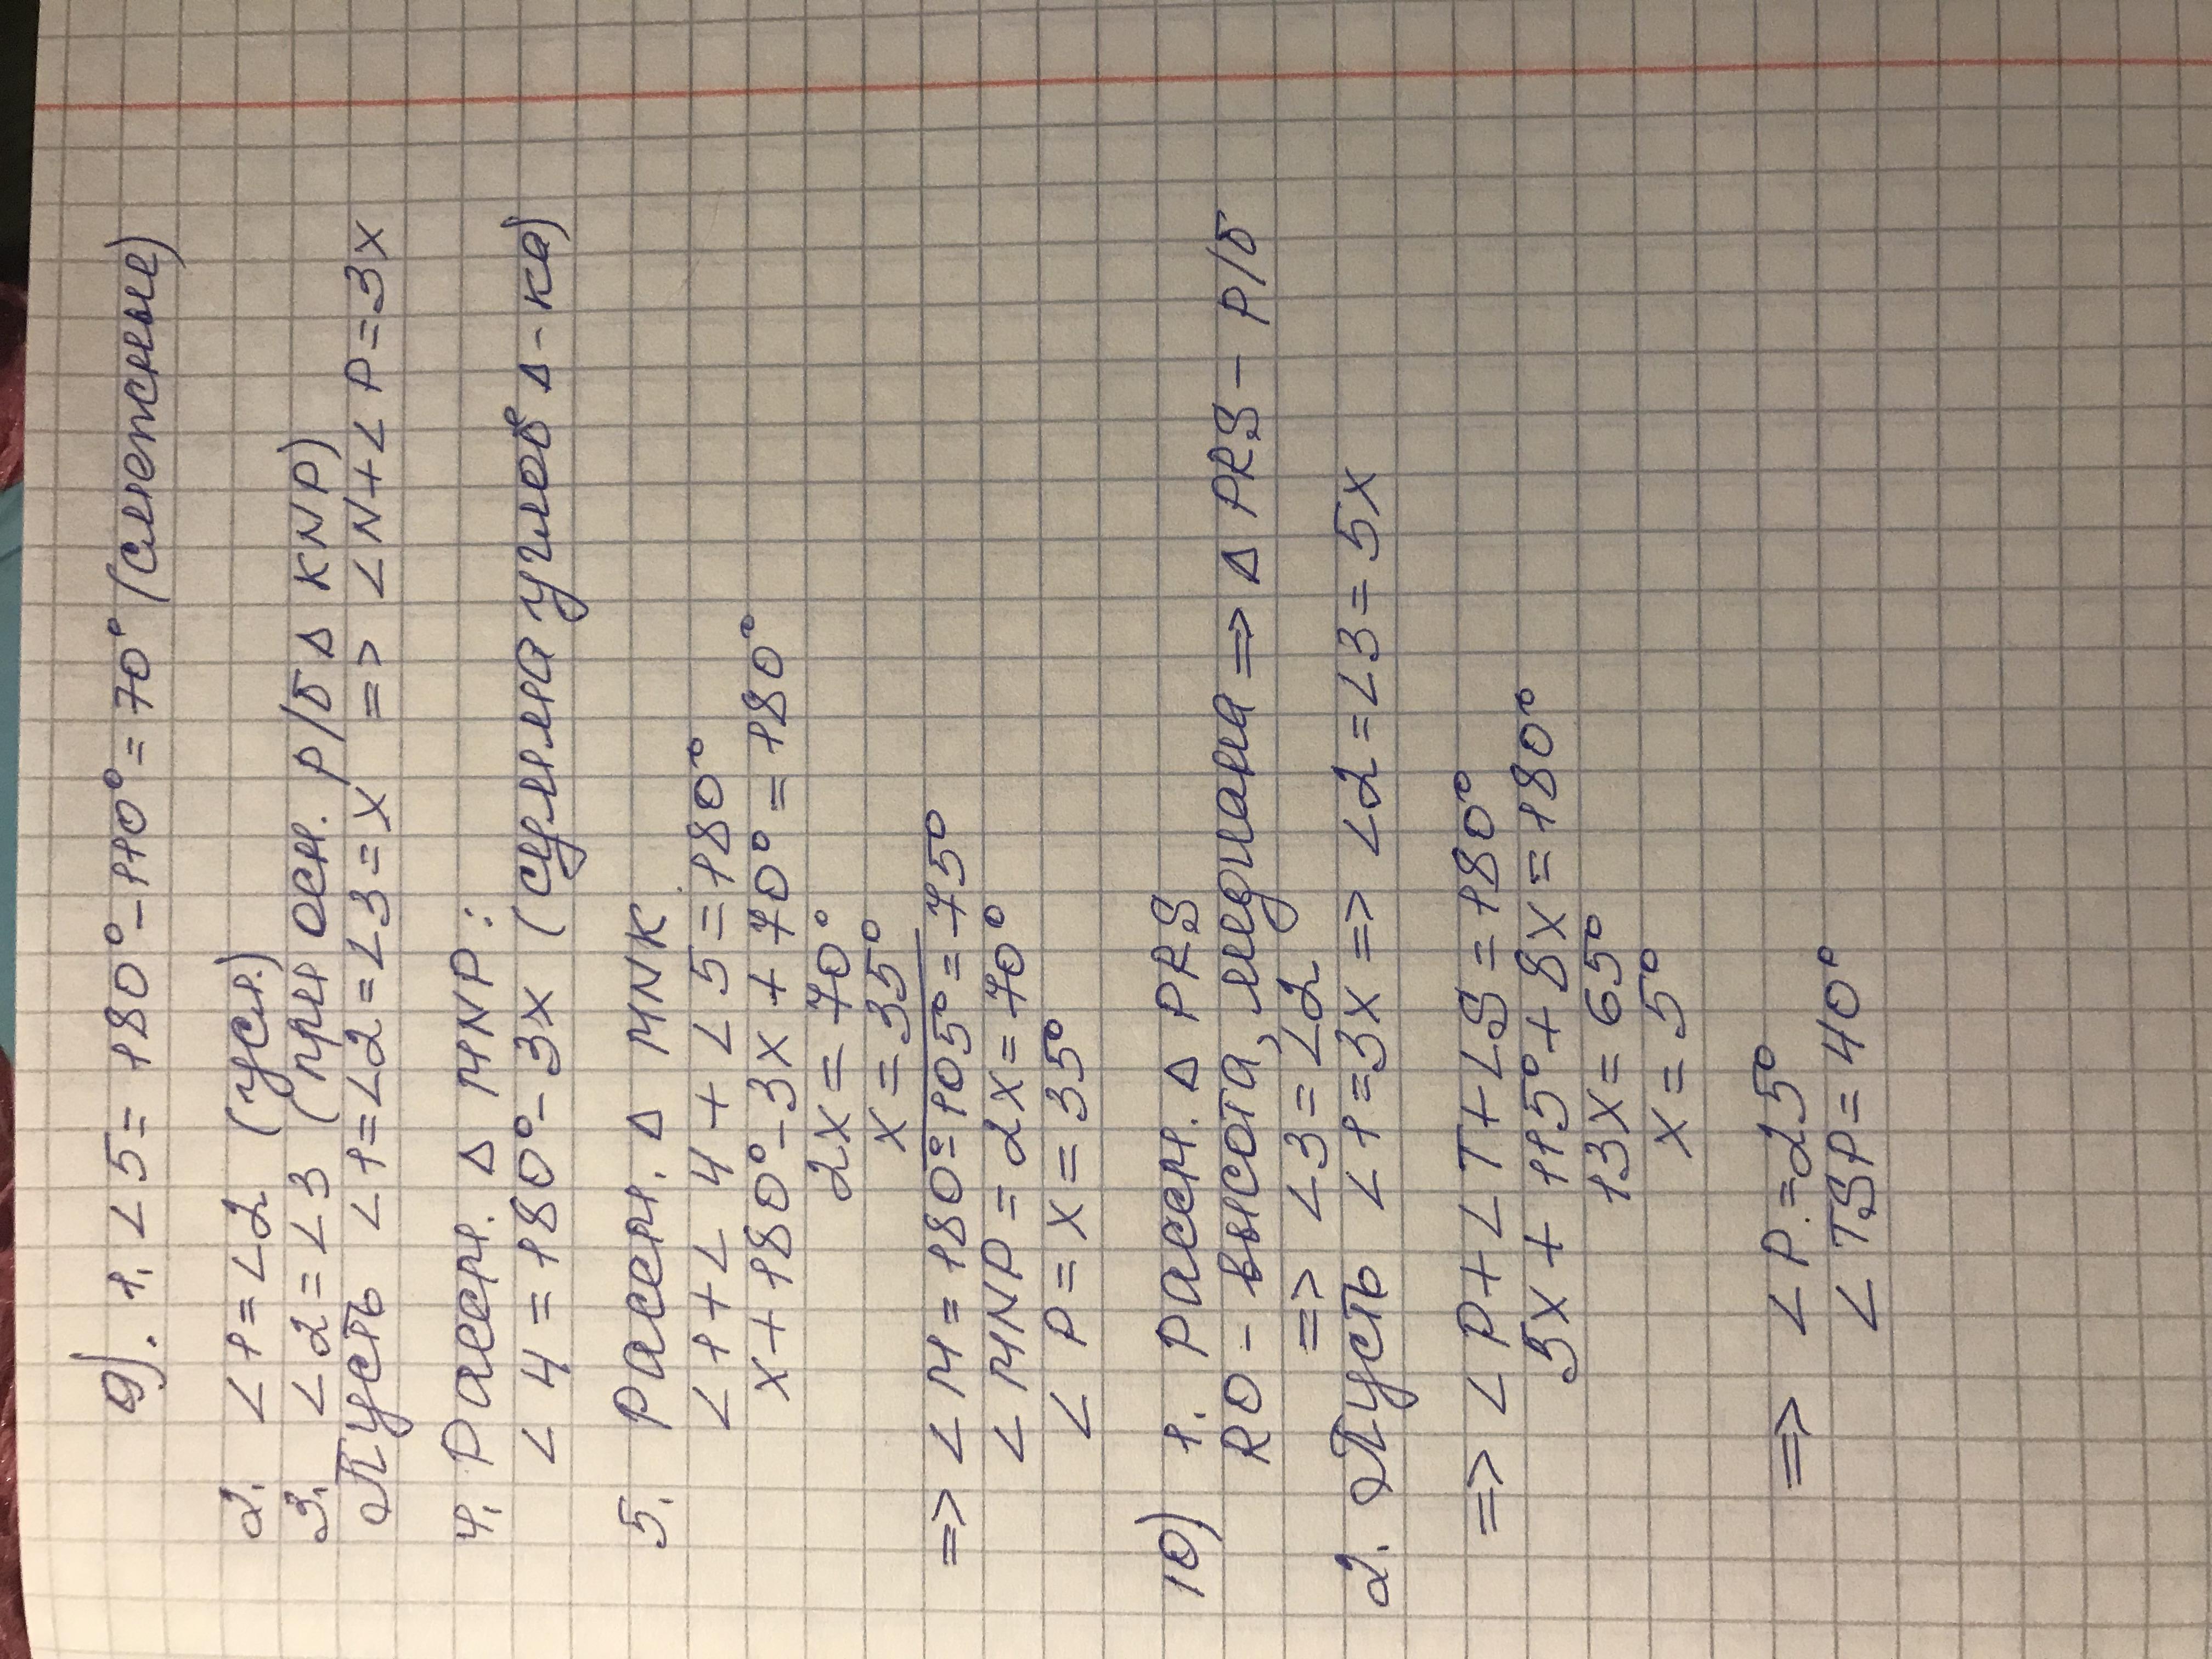 9). 1. ∠5 = 180° – 110° = 70° (смежные)
2. ∠1 = ∠2 (усл.)
3. ∠2 = ∠3 (при осн. р/б Δ KNP)
Пусть ∠1 = ∠2 = ∠3 = x => ∠N + ∠P = 3x
4. Рассм. Δ MNP:
∠4 = 180° – 3x (сумма углов Δ-ка)
5. Рассм. Δ MNK
∠1 + ∠4 + ∠5 = 180°
x + 180° – 3x + 70° = 180°
2x = 70°
x = 35°
=> ∠M = 180° – 105° = 75°
∠MNP = 2x = 70°
∠P = x = 35°
10) 1. Рассм. Δ PRS
RO – высота, медиана => Δ PRS – р/б
=> ∠3 = ∠2
2. Пусть ∠1 = 3x => ∠2 = ∠3 = 5x
=> ∠P + ∠T + ∠S = 180°
5x + 115° + 8x = 180°
13x = 65°
x = 5°
=> ∠P = 25°
∠TSP = 40°